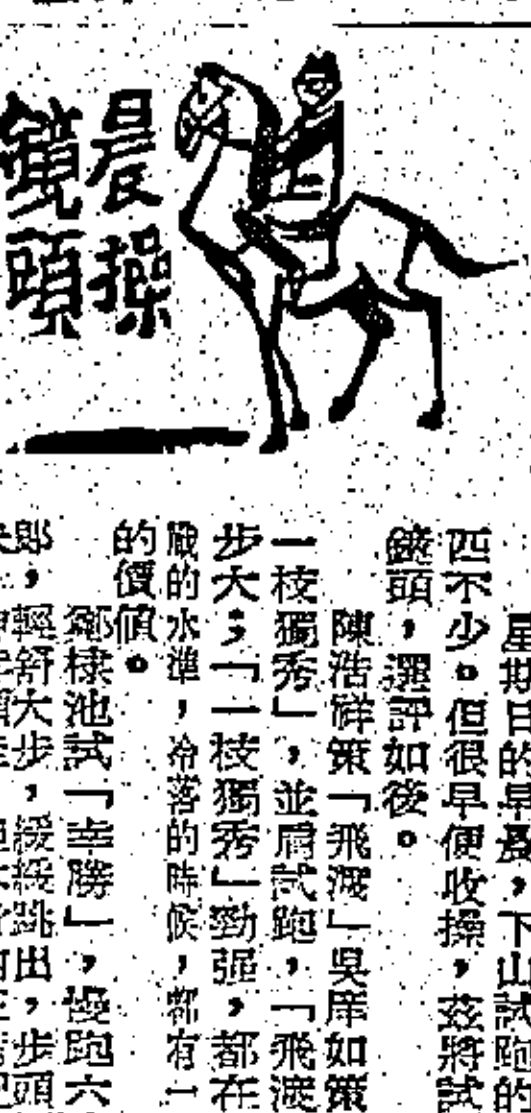 晨操
鏡頭
星期日的早晨，下山試跑的
四不少。但很早便收操，茲將試
鏡頭，選評如後。
陳浩祥策「飛渡」吳庠如策
一枝獨秀」，並肩試跑，「飛渡
步大；「一枝獨秀」勁强，都在
戰的水準，冷落的時候，都有一
的價值。
鄭棣池試「幸勝」，慢跑六
郎，輕舒大步，緩緩跳出，步頭